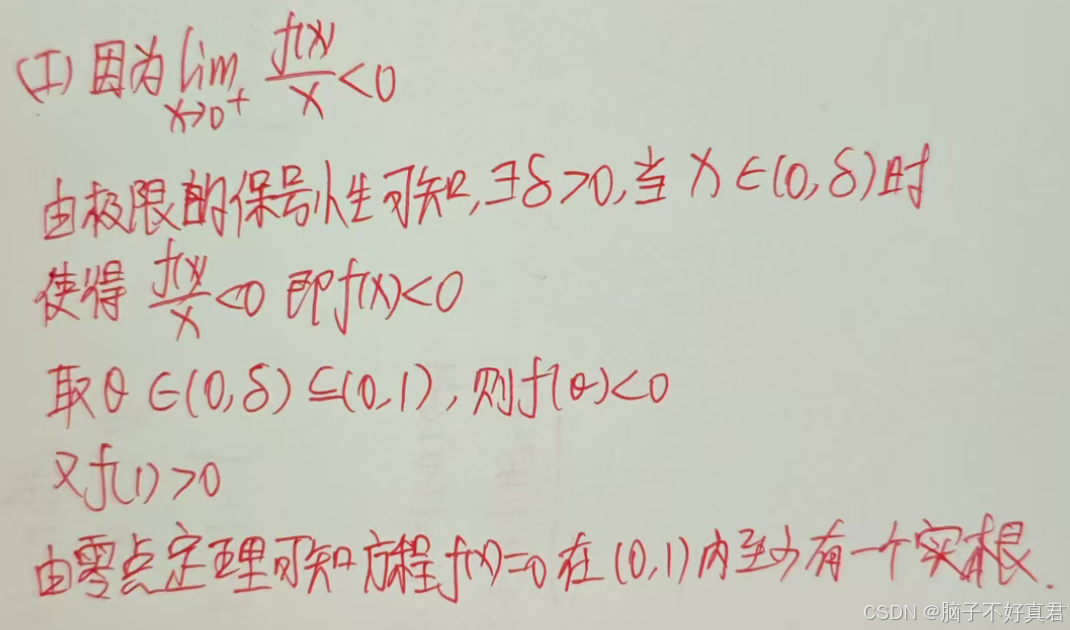 (I) 因为 lim x→0⁺ f(x)/x <0
由极限的保号性可知,∃δ>0,当 x∈(0,δ)时
使得 f(x)/x <0 即f(x)<0
取θ∈(0,δ)⊆(0,1),则f(θ)<0
又f(1)>0
由零点定理可知方程f(x)=0在(0,1)内至少有一个实根.
CSDN @脑子不好真君